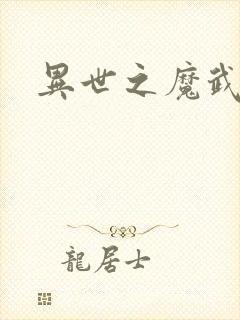 異世之魔武
龍居士